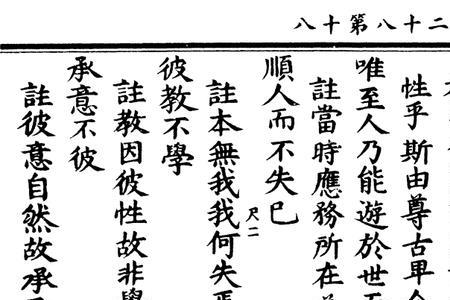 二十八第十八
性乎斯由尊古卑今
唯至人乃能遊於世
註當時應務所在
順人而不失己
註本無我我何失焉
尺二
彼教不學
註教因彼性故非學
承意不彼
註彼意自然故承